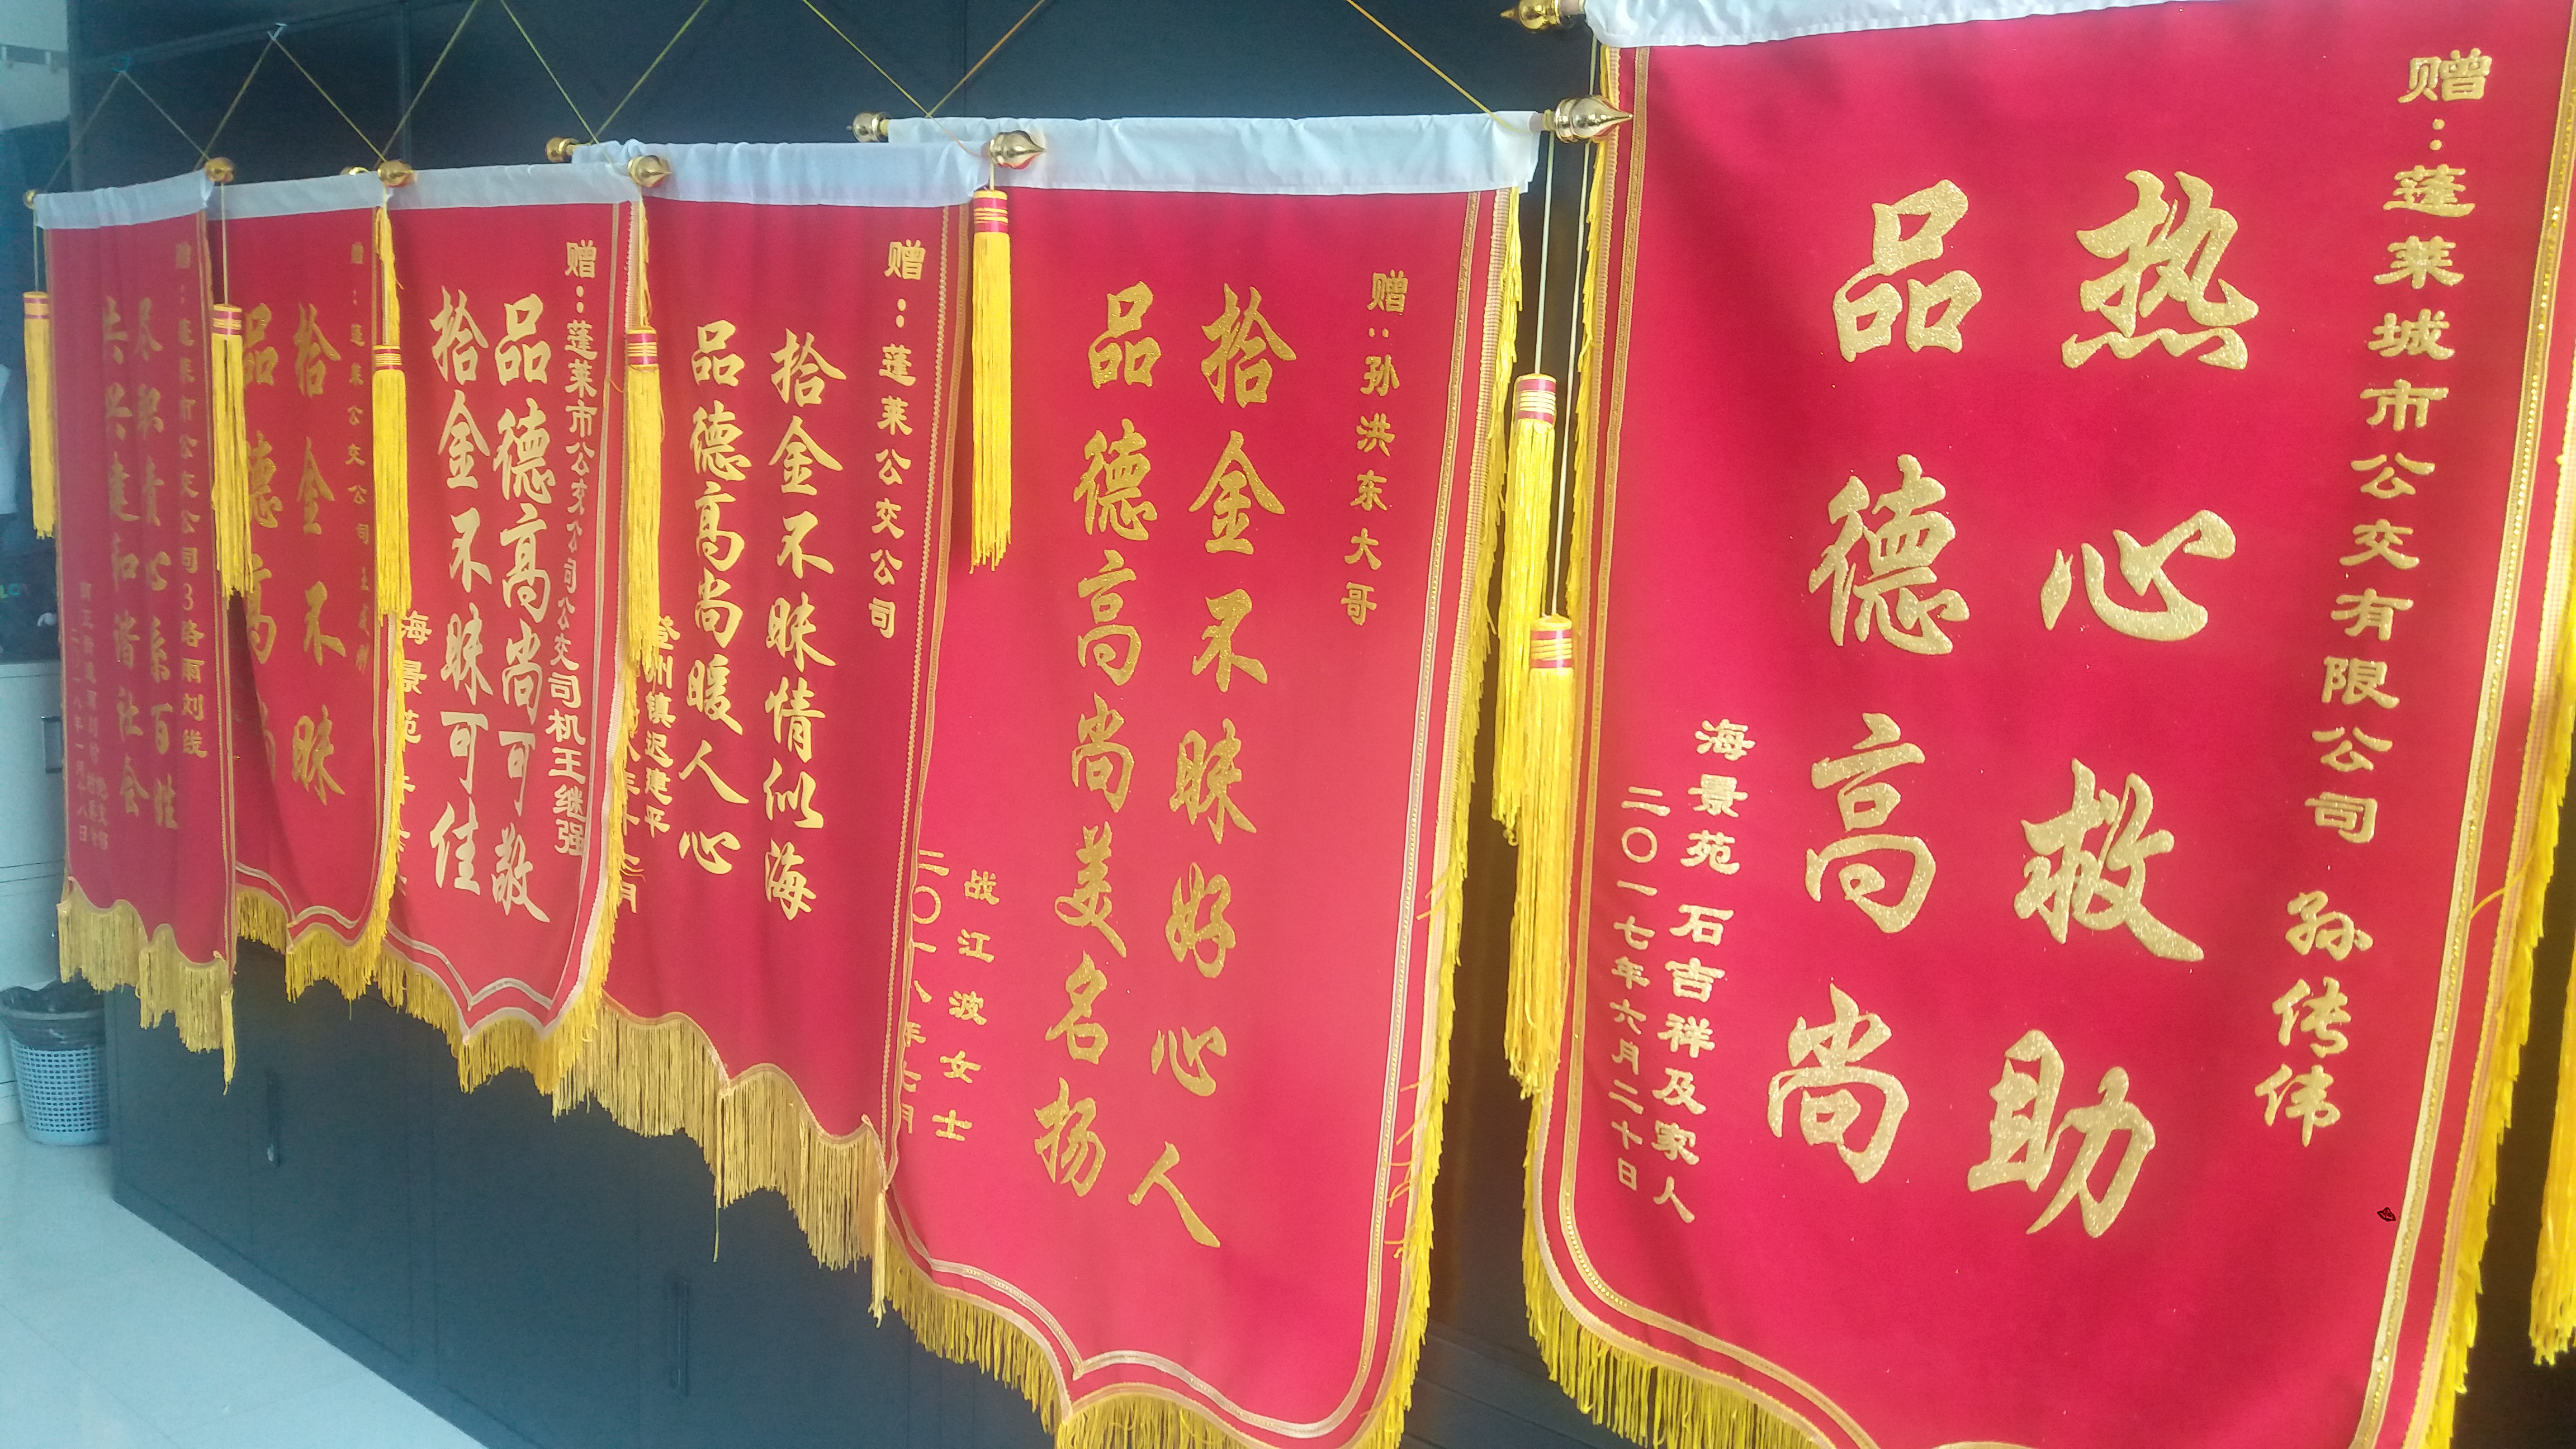 赠:蓬莱城市公交有限公司 孙传伟
热心救助
品德高尚
海景苑 石吉祥及家人
二〇一七年六月二十日
赠:孙洪东大哥
拾金不昧好心人
品德高尚美名扬
战江波女士
二〇一八年七月
赠:蓬莱公交公司
拾金不昧情似海
品德高尚暖人心
登州镇迟建平
赠:蓬莱市公交公司公交司机王继强
品德高尚可敬
拾金不昧可佳
海景苑
赠:蓬莱公交公司
拾金不昧
品德高尚
赠:蓬莱市公交公司3路雨刘线
尽职责心系百姓
共兴建和谐社会
二〇一八年一月八日